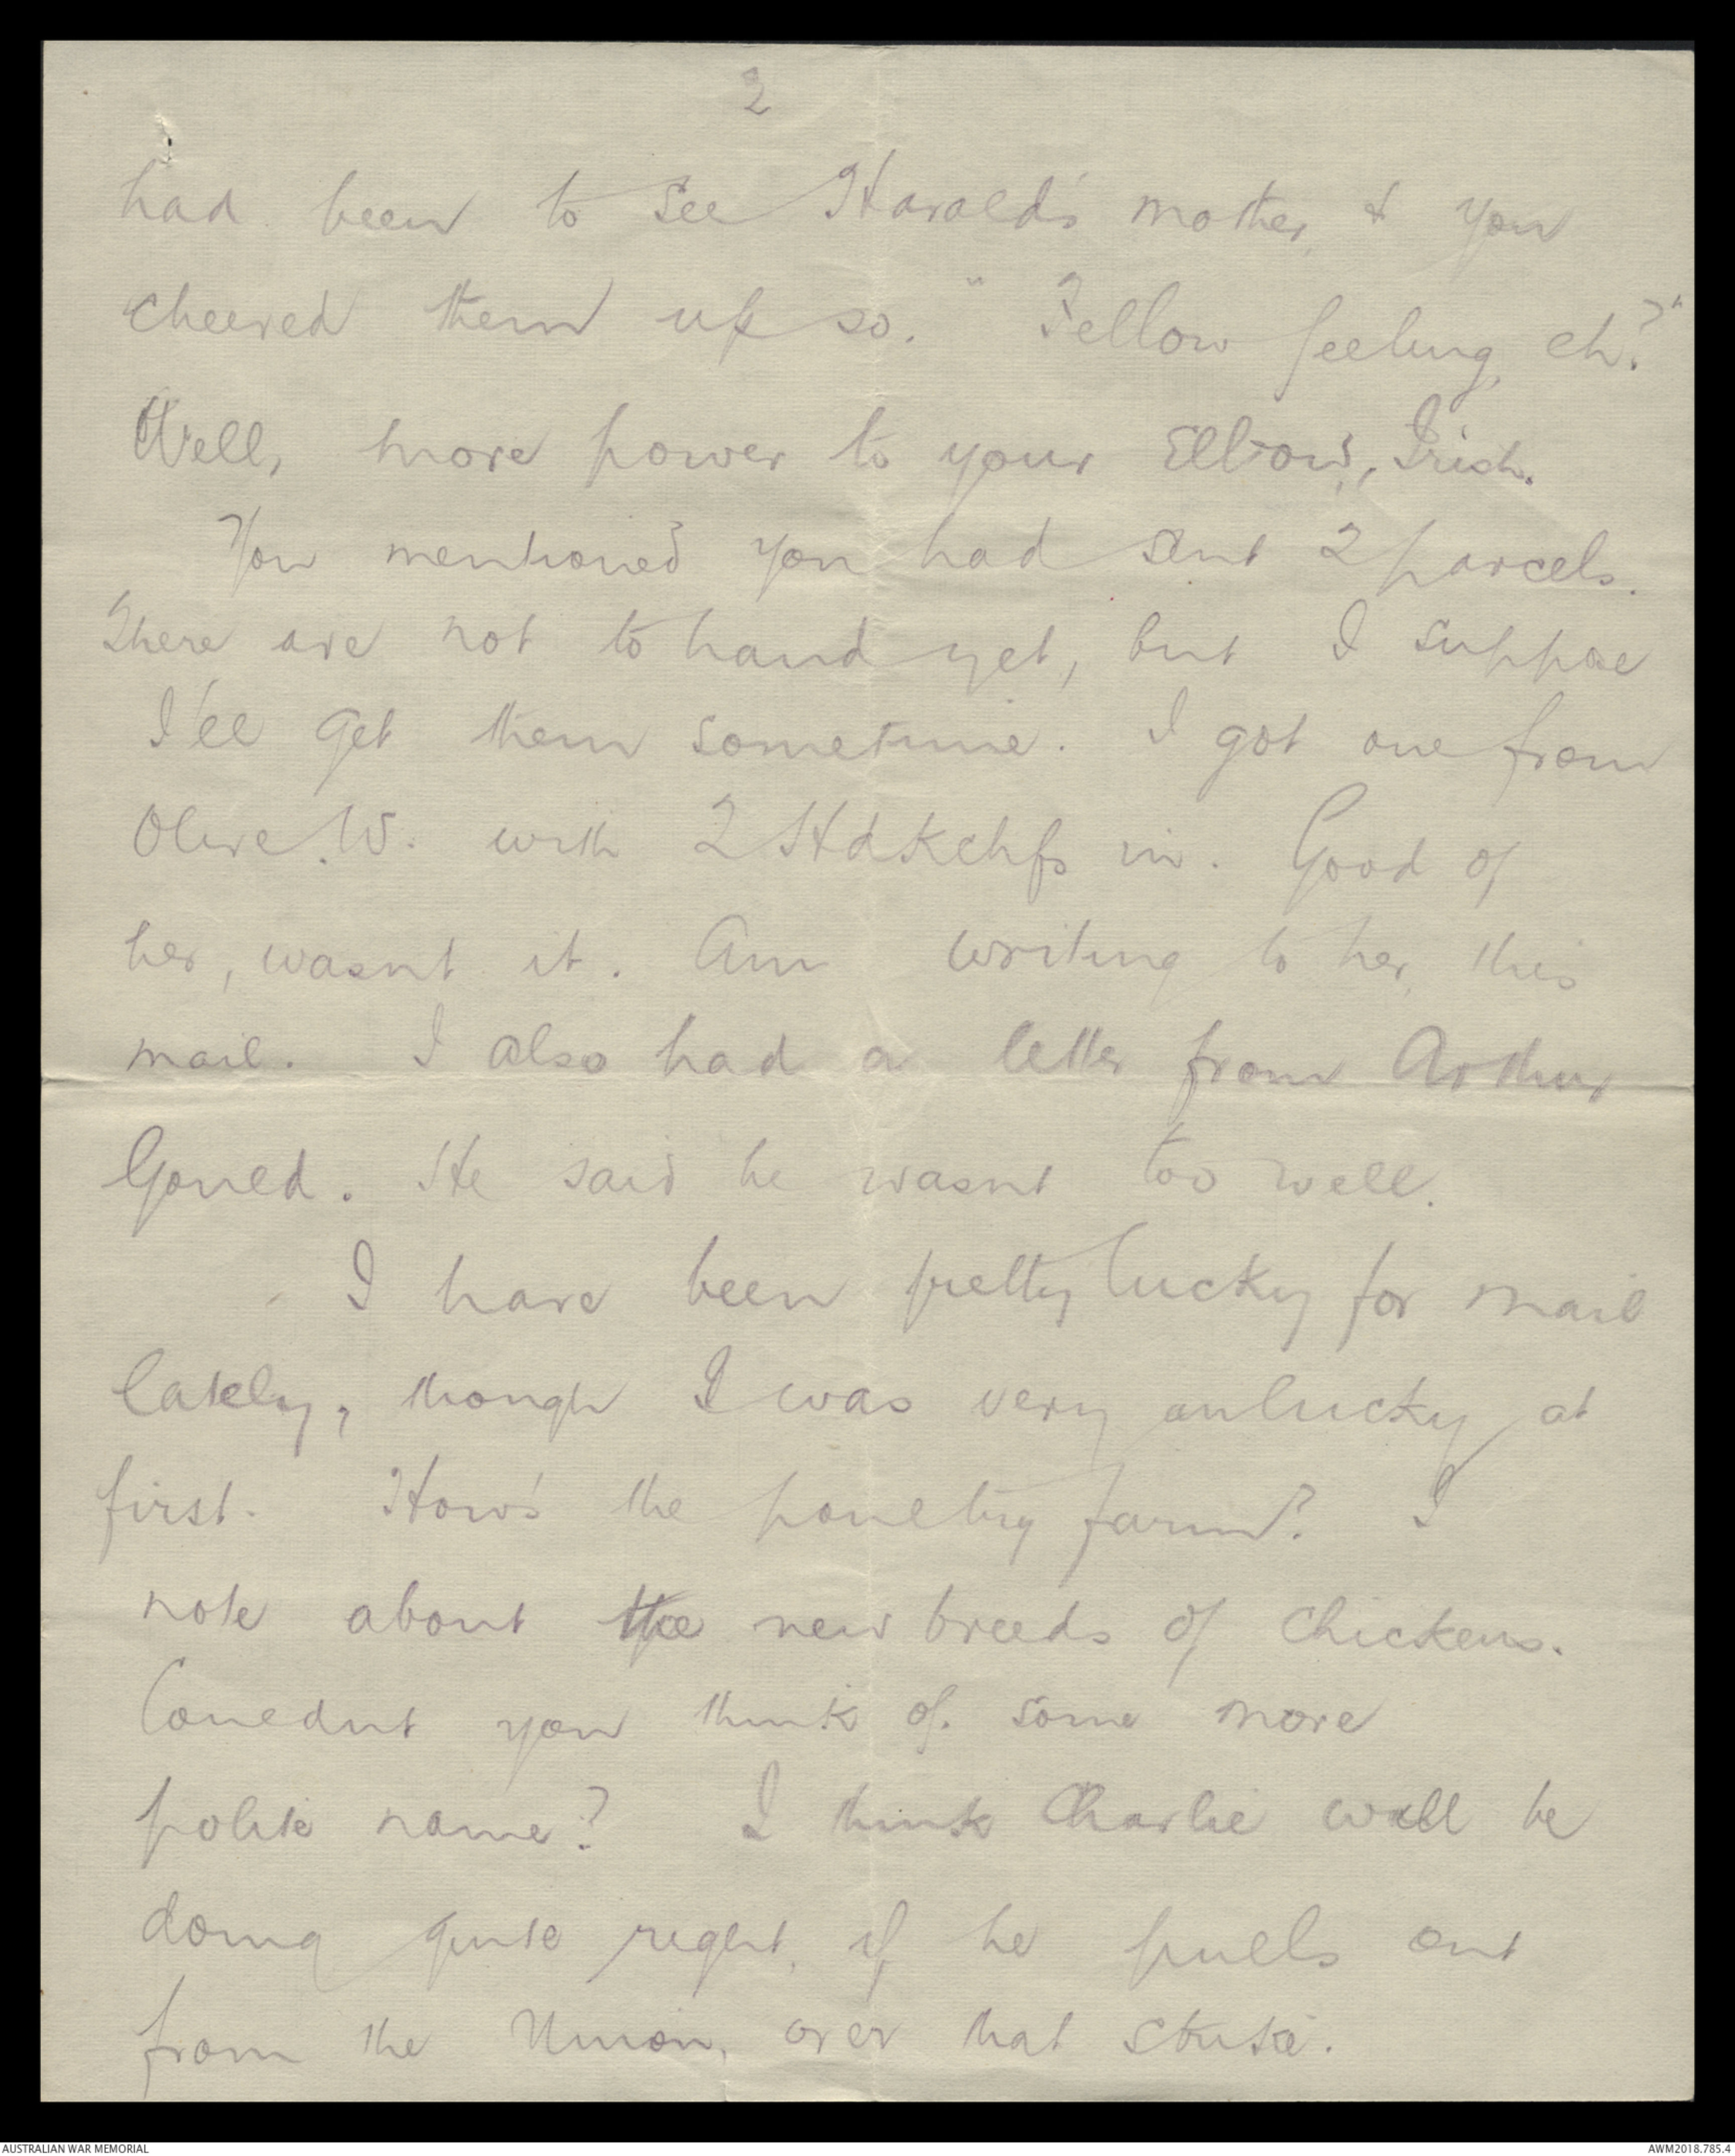 2
had been to see Harold's mother, & you
cheered them up so. "Fellow feeling, eh?"
Well, more power to your Elbow, Trich.
You mentioned you had sent 2 parcels.
There are not to hand yet, but I suppose
I'll get them sometime. I got one from
Olive. W. with 2 Hdkchfs in. Good of
her, wasnt it. Am writing to her, this
mail. I also had a letter from Arthur
Gould. He said he wasnt too well.
I have been pretty lucky for mail
lately, though I was very unlucky at
first. How's the poultry farm? I
note about the new breeds of chickens.
Couldnt you think of some more
polite name? I think Charlie will be
doing quite right, if he pulls out
from the Union, over that strike.
AUSTRALIAN WAR MEMORIAL
AWM2018.785.4